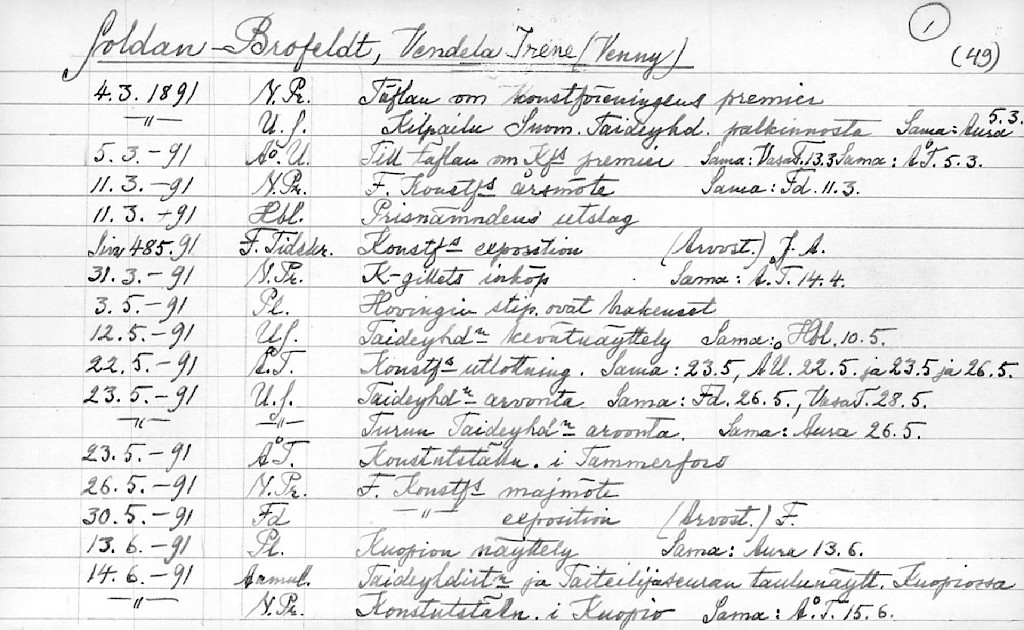 Soldan-Brofeldt, Vendela Irene (Venny) 1 (49)
4.3.1891 N.Pr. Täflan om konstföreningens premier
—"— U.S. Kilpailu Suom. Taideyhd. palkinnosta Sama: Aura 5.3.
5.3.-91 Åo.U. Till täflan om Kfs premier Sama: VasaT. 13.3 Sama: ÅT. 5.3.
11.3.-91 N.Pr. F. Konstfs årsmöte Sama: Fd. 11.3.
11.3.-91 Hbl. Prisnämndens utslag
Siv 485.91 F. Tidskr. Konstfs exposition (Arvost.) J. A.
31.3.-91 N.Pr. K-gillets inköp Sama: Å.T. 14.4.
3.5.-91 Pl. Hovingin stip. ovat hakeneet
12.5.-91 U.S. Taideyhdn kevätnäyttely Sama: Hbl. 10.5.
22.5.-91 Å.T. Konstfs utlottning. Sama: 23.5, ÅU. 22.5. ja 23.5 ja 26.5.
23.5.-91 U.S. Taideyhdn arvonta. Sama: Fd. 26.5., VasaT. 28.5.
—"— —"— Turun Taideyhdn arvonta. Sama: Aura 26.5.
23.5.-91 ÅT. Konstutställn. i Tammerfors
26.5.-91 N.Pr. F. Konstfs majmöte
30.5.-91 Fd —"— exposition (Arvost.) F.
13.6.-91 Pl. Kuopion näyttely Sama: Aura 13.6.
14.6.-91 Aamul. Taideyhdistn ja Taiteilijaseuran taulunäytt. Kuopiossa
—"— N.Pr. Konstutställn. i Kuopio Sama: Å.T. 15.6.